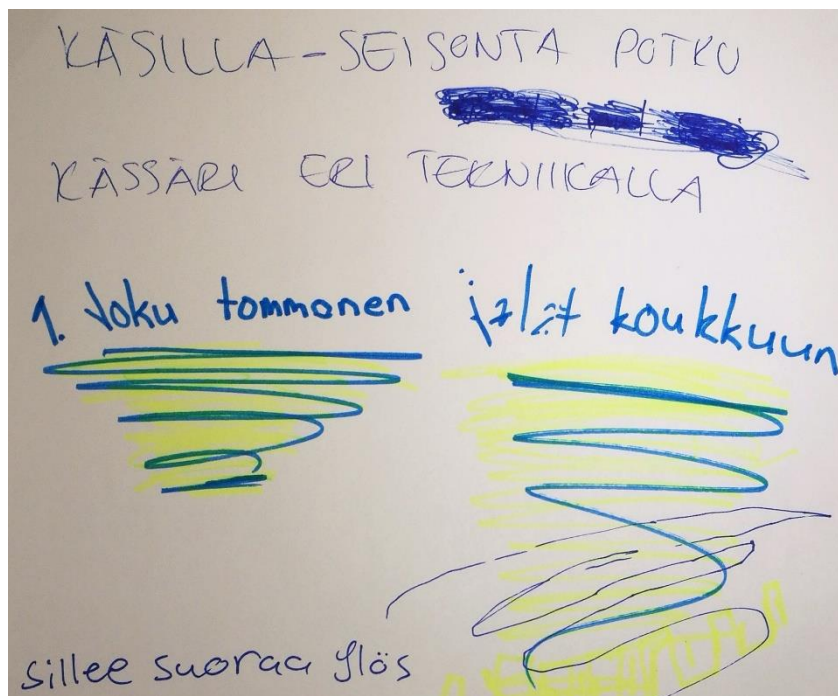 KÄSILLÄ-SEISONTA POTKU
KÄSSÄRI ERI TEKNIIKALLA
1. Joku tommonen jalat koukkuun
sillee suoraa ylös